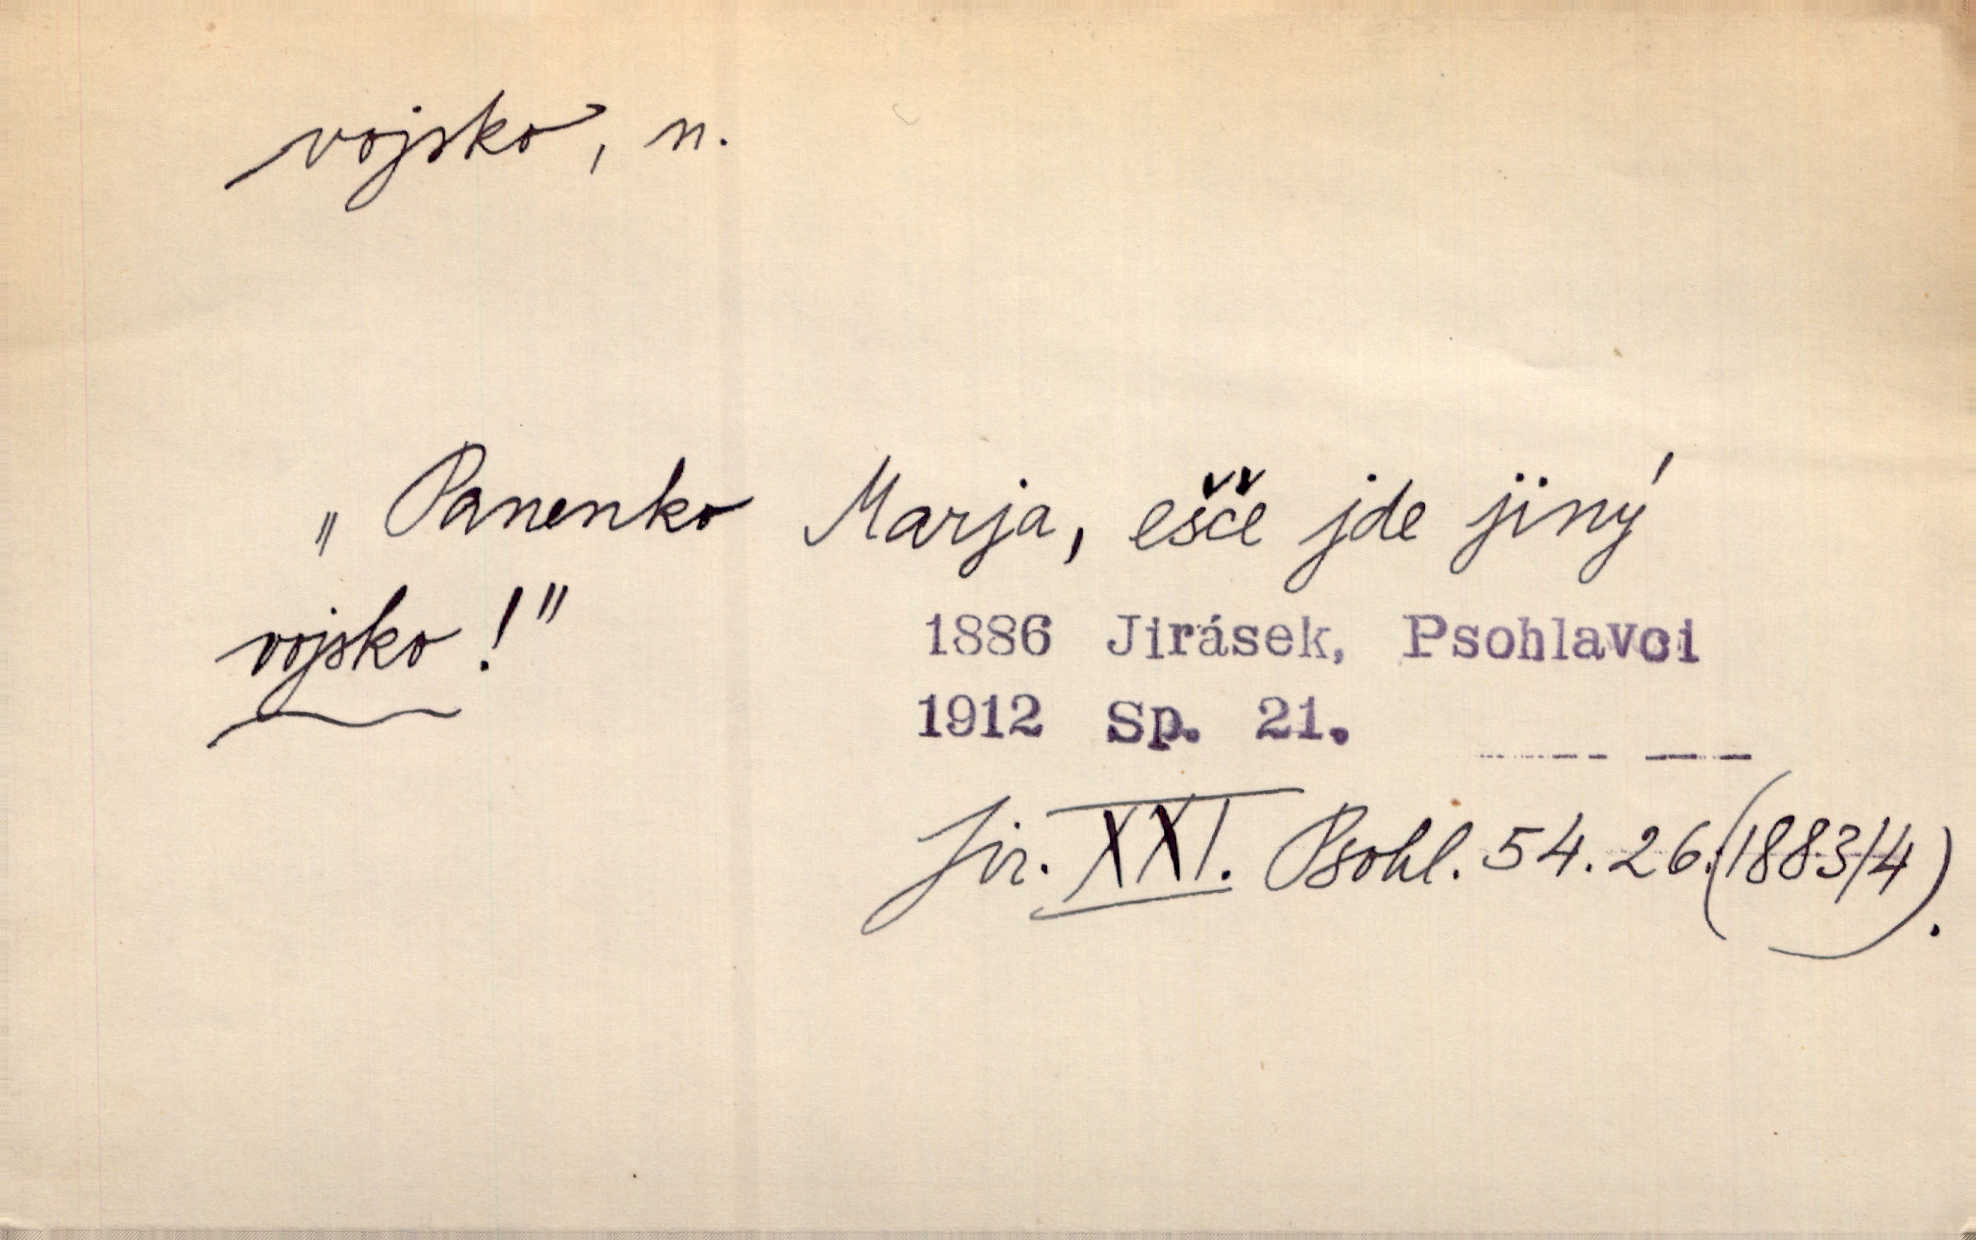 vojsko, n.
„Panenko Marja, ešče jde jiný
vojsko!"
1886 Jirásek, Psohlavci
1912 Sp. 21.
Jir. XXI. Psohl. 54. 26. (1883/4).